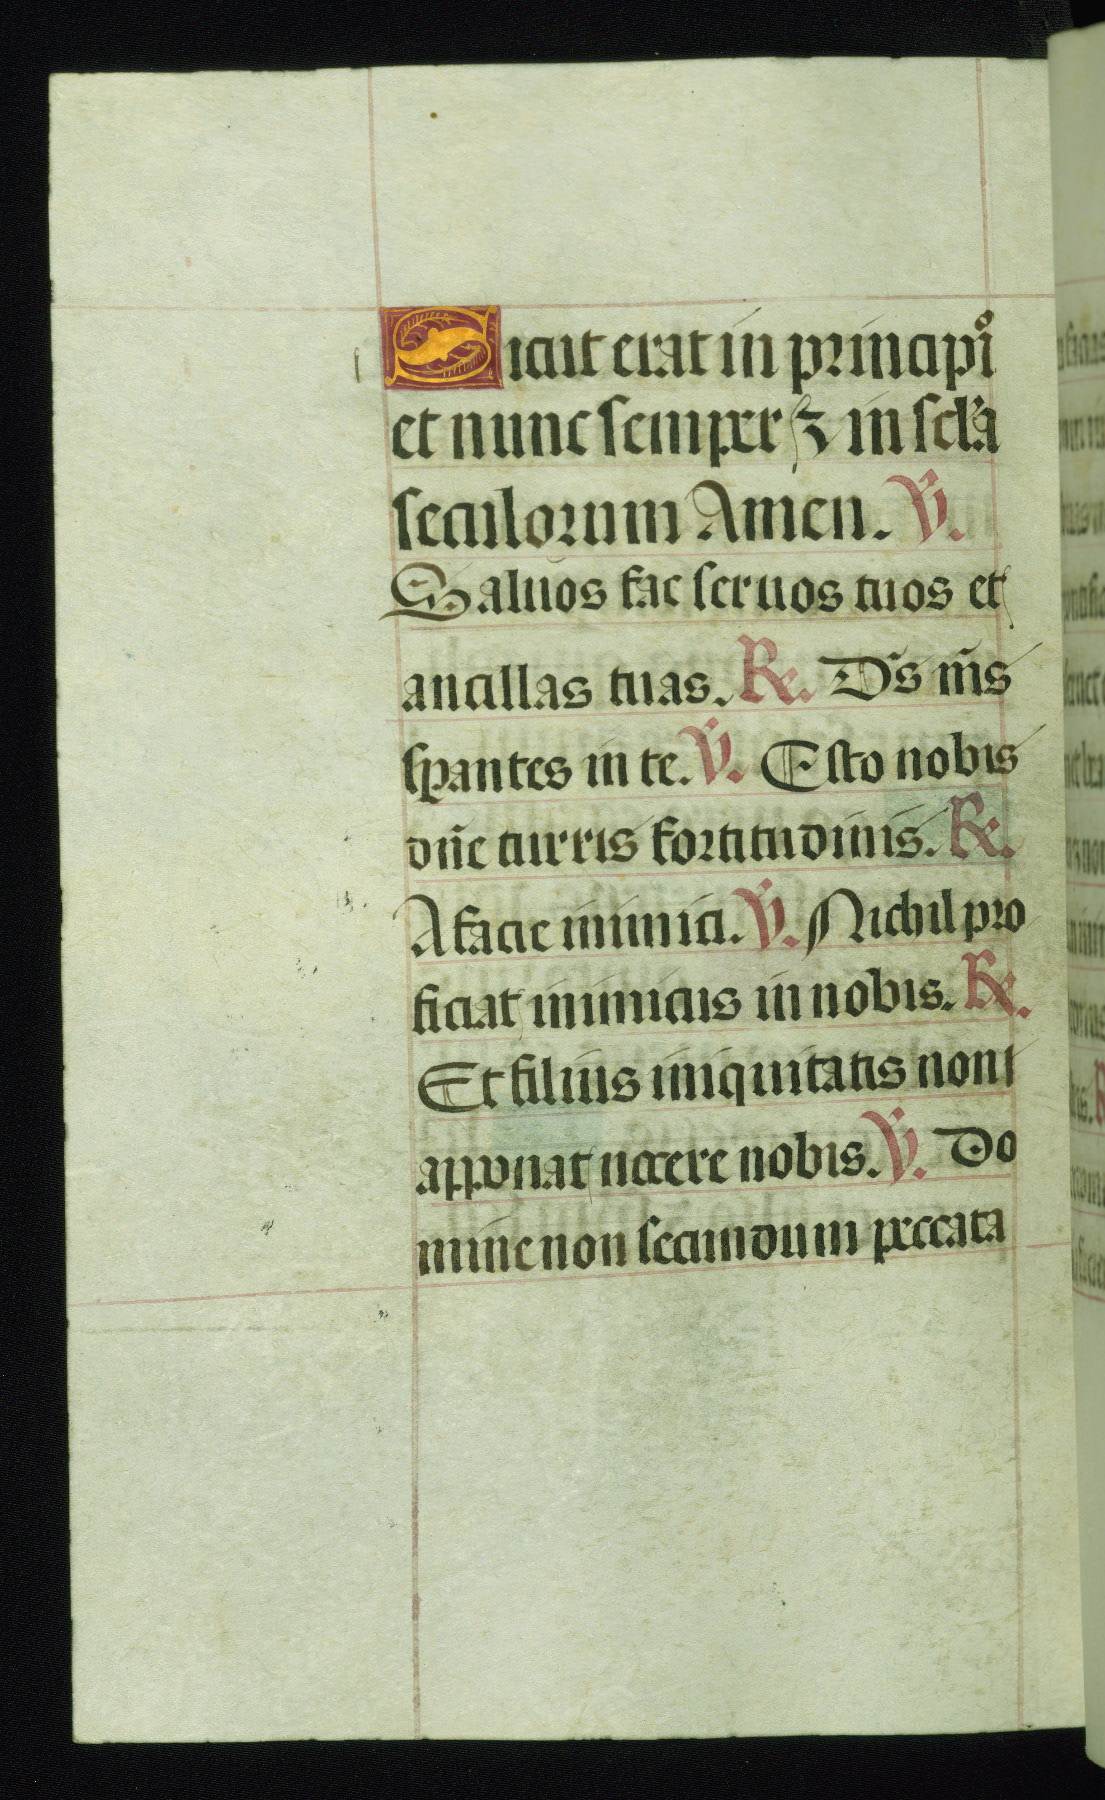 Sicut erat in principio
et nunc semper ⁊ in scl̃a
seculorum Amen. V̄.
Saluos fac seruos tuos et
ancillas tuas. R̃e. Ds̃ m̃s
sꝑantes in te. V̄. Esto nobis
dñe turris fortitudinis. R̃e.
A facie inimici. V̄. Nichil pro
ficiat inimicus in nobis. R̃e.
Et filius iniquitatis non
apponat nocere nobis. V̄. Do
mine non secundum peccata